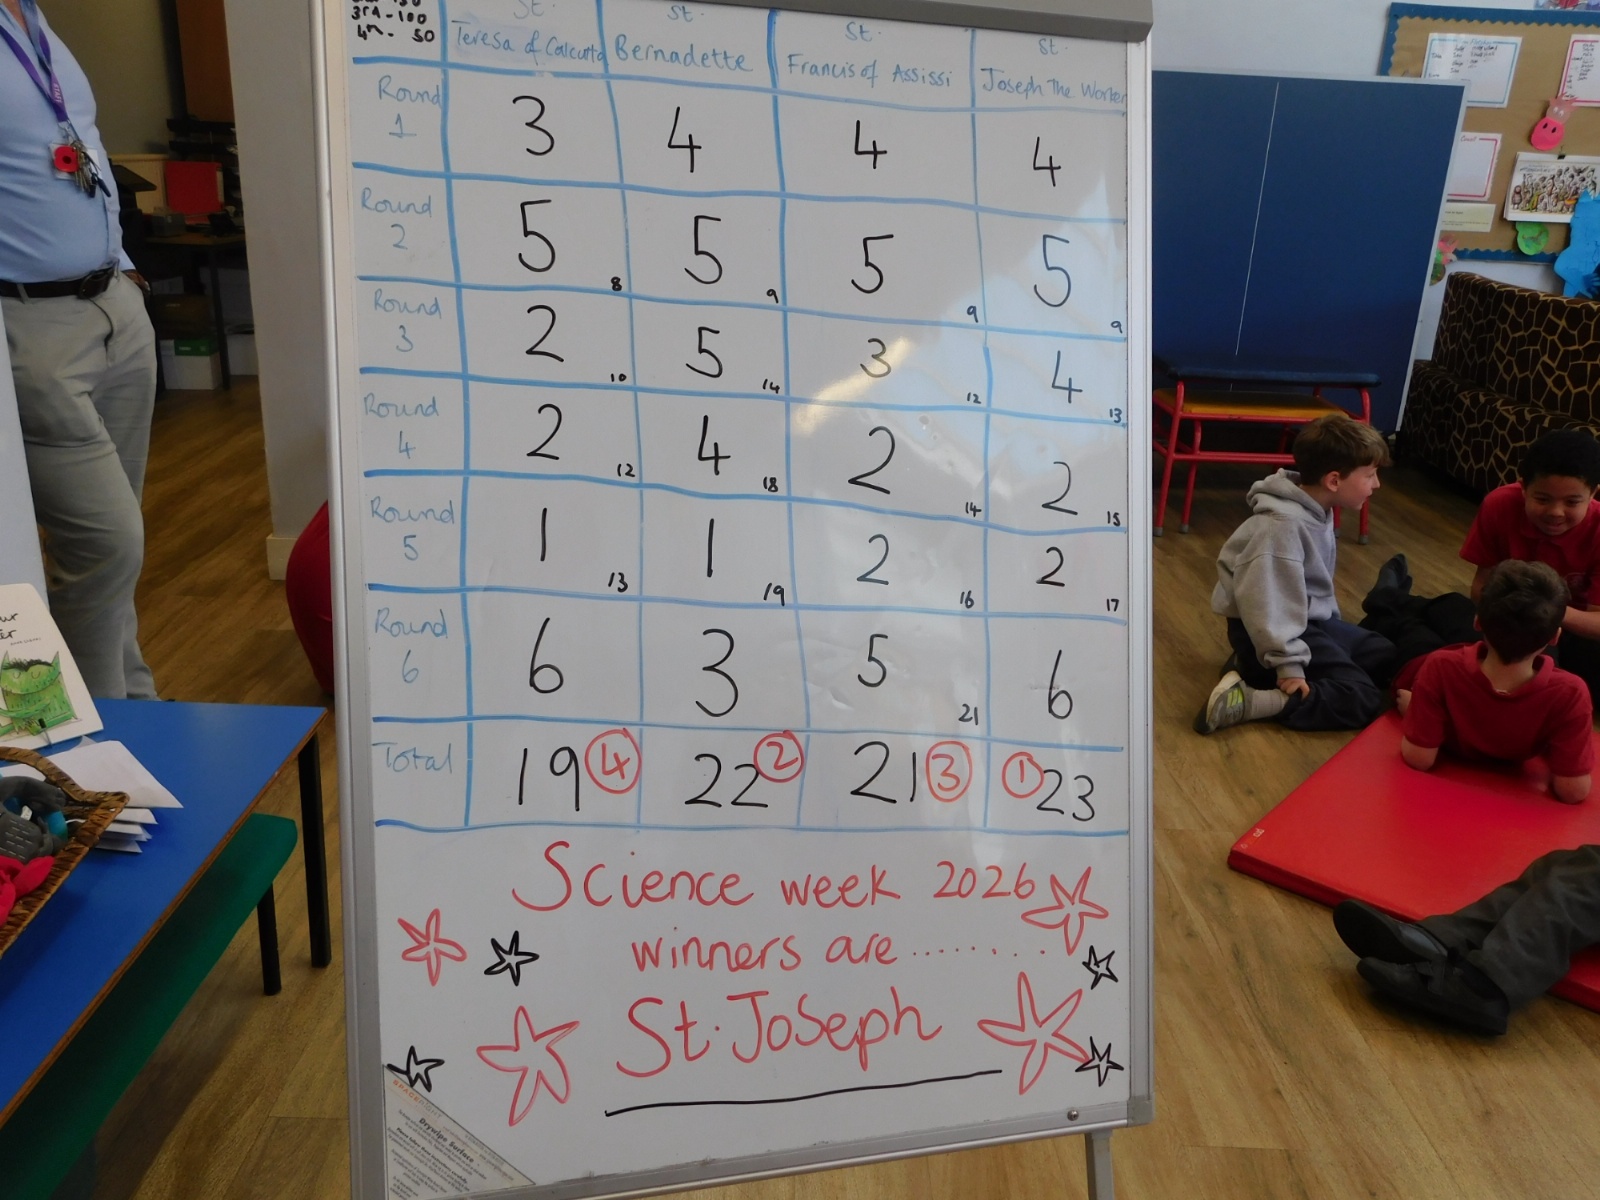 3rd - 100
4th - 50
St. St. St. St.
Teresa of Calcutta Bernadette Francis of Assissi Joseph The Worker
Round 1 3 4 4 4
Round 2 5 8 5 9 5 9 5 9
Round 3 2 10 5 14 3 12 4 13
Round 4 2 12 4 18 2 14 2 15
Round 5 1 13 1 19 2 16 2 17
Round 6 6 3 5 21 6
Total 19 4 22 2 21 3 1 23
Science week 2026
winners are ........
St. Joseph
Drywipe Surface